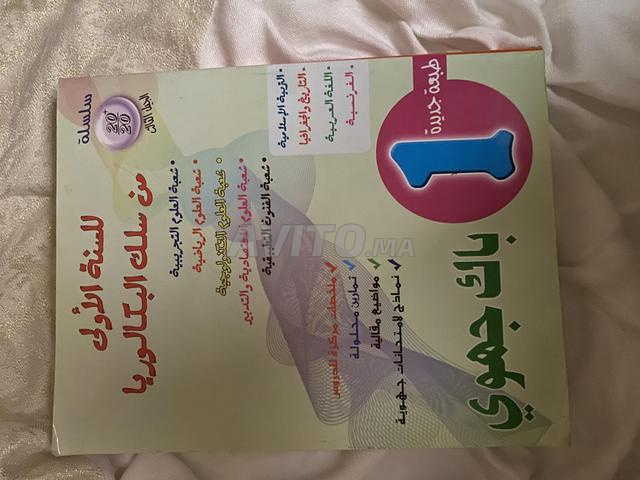 طبعة جديدة
1
باك جهوي
الفرنسية
اللغة العربية
التاريخ والجغرافيا
التربية الإسلامية
نماذج لامتحانات جهوية
مواضيع مقالية
تمارين محلولة
ملخصات مركزة للدروس
شعبة الفنون التطبيقية
شعبة العلوم الاقتصادية والتدبير
شعبة العلوم التكنولوجية
شعبة العلوم الرياضية
شعبة العلوم التجريبية
للسنة الأولى
من سلك البكالوريا
سلسلة
20
20
الجلد الثالث
AVITO.MA